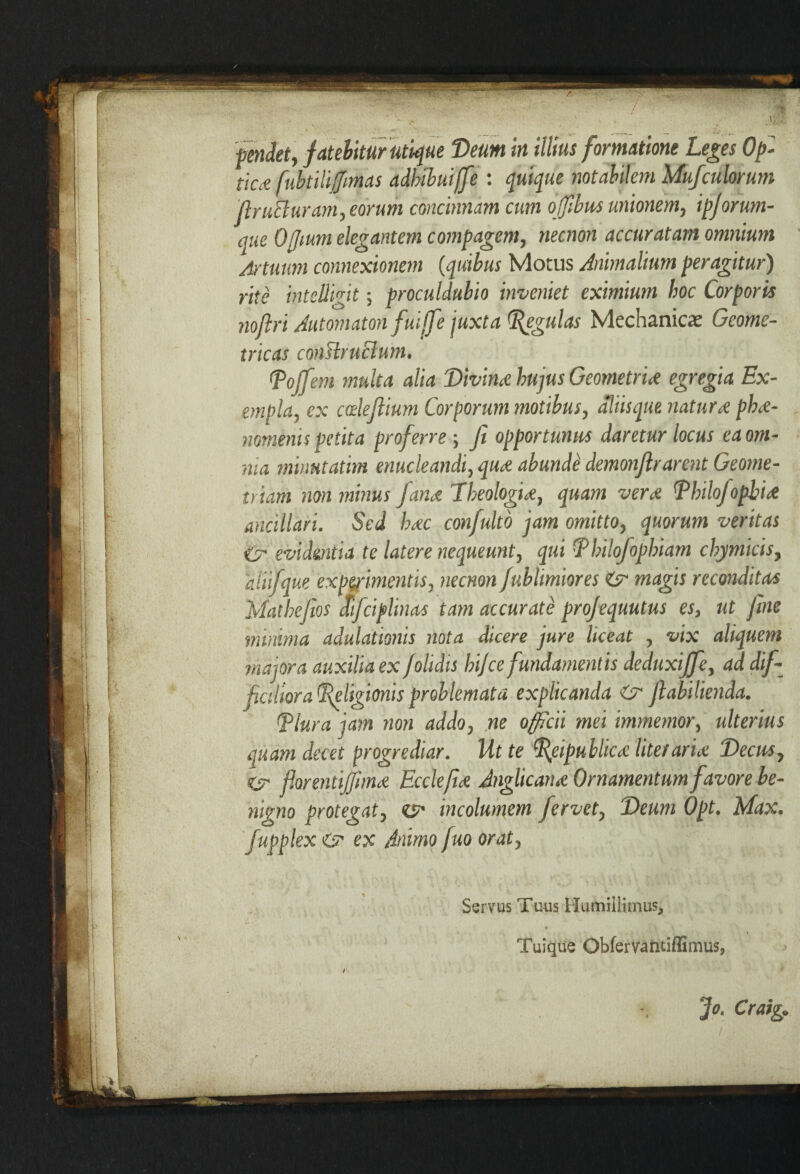 pendet, fatebitur utique Deum in illius formatione Leges Op-
ticæ ſubtiliſſimas adhibuiſſe : quique notabilem Muſculorum
ſtructuram, eorum concinnam cum oſſibus unionem, ipſorum-
que Oſſium elegantem compagem, necnon accuratam omnium
Artuum connexionem (quibus Motus Animalium peragitur)
ritè intelligit ; proculdubio inveniet eximium hoc Corporis
noſtri Automaton fuiſſe juxta Regulas Mechanicæ Geome-
tricas conſtructum.
Poſſem multa alia Divinæ hujus Geometriæ egregia Ex-
empla, ex cœleſtium Corporum motibus, aliisque naturæ phæ-
nomenis petita proferre ; ſi opportunus daretur locus ea om-
nia minutatim enucleandi, quæ abundè demonſtrarent Geome-
triam non minus ſanæ Theologiæ, quam veræ Philoſophiæ
ancillari. Sed hæc conſultò jam omitto, quorum veritas
& evidentia te latere nequeunt, qui Philoſophiam chymicis,
aliiſque experimentis, necnon ſublimiores & magis reconditas
Matheſios diſciplinas tam accuratè proſequutus es, ut ſine
minima adulationis nota dicere jure liceat , vix aliquem
majora auxilia ex ſolidis hiſce fundamentis deduxiſſe, ad dif-
ficiliora Religionis problemata explicanda & ſtabilienda.
Plura jam non addo, ne officii mei immemor, ulterius
quam decet progrediar. Ut te Reipublicæ literariæ Decus,
& florentiſſimæ Eccleſiæ Anglicanæ Ornamentum favore be-
nigno protegat, & incolumem ſervet, Deum Opt. Max.
ſupplex & ex Animo ſuo orat,
Servus Tuus Humillimus,
Tuique Obſervantiſſimus,
Jo. Craig.